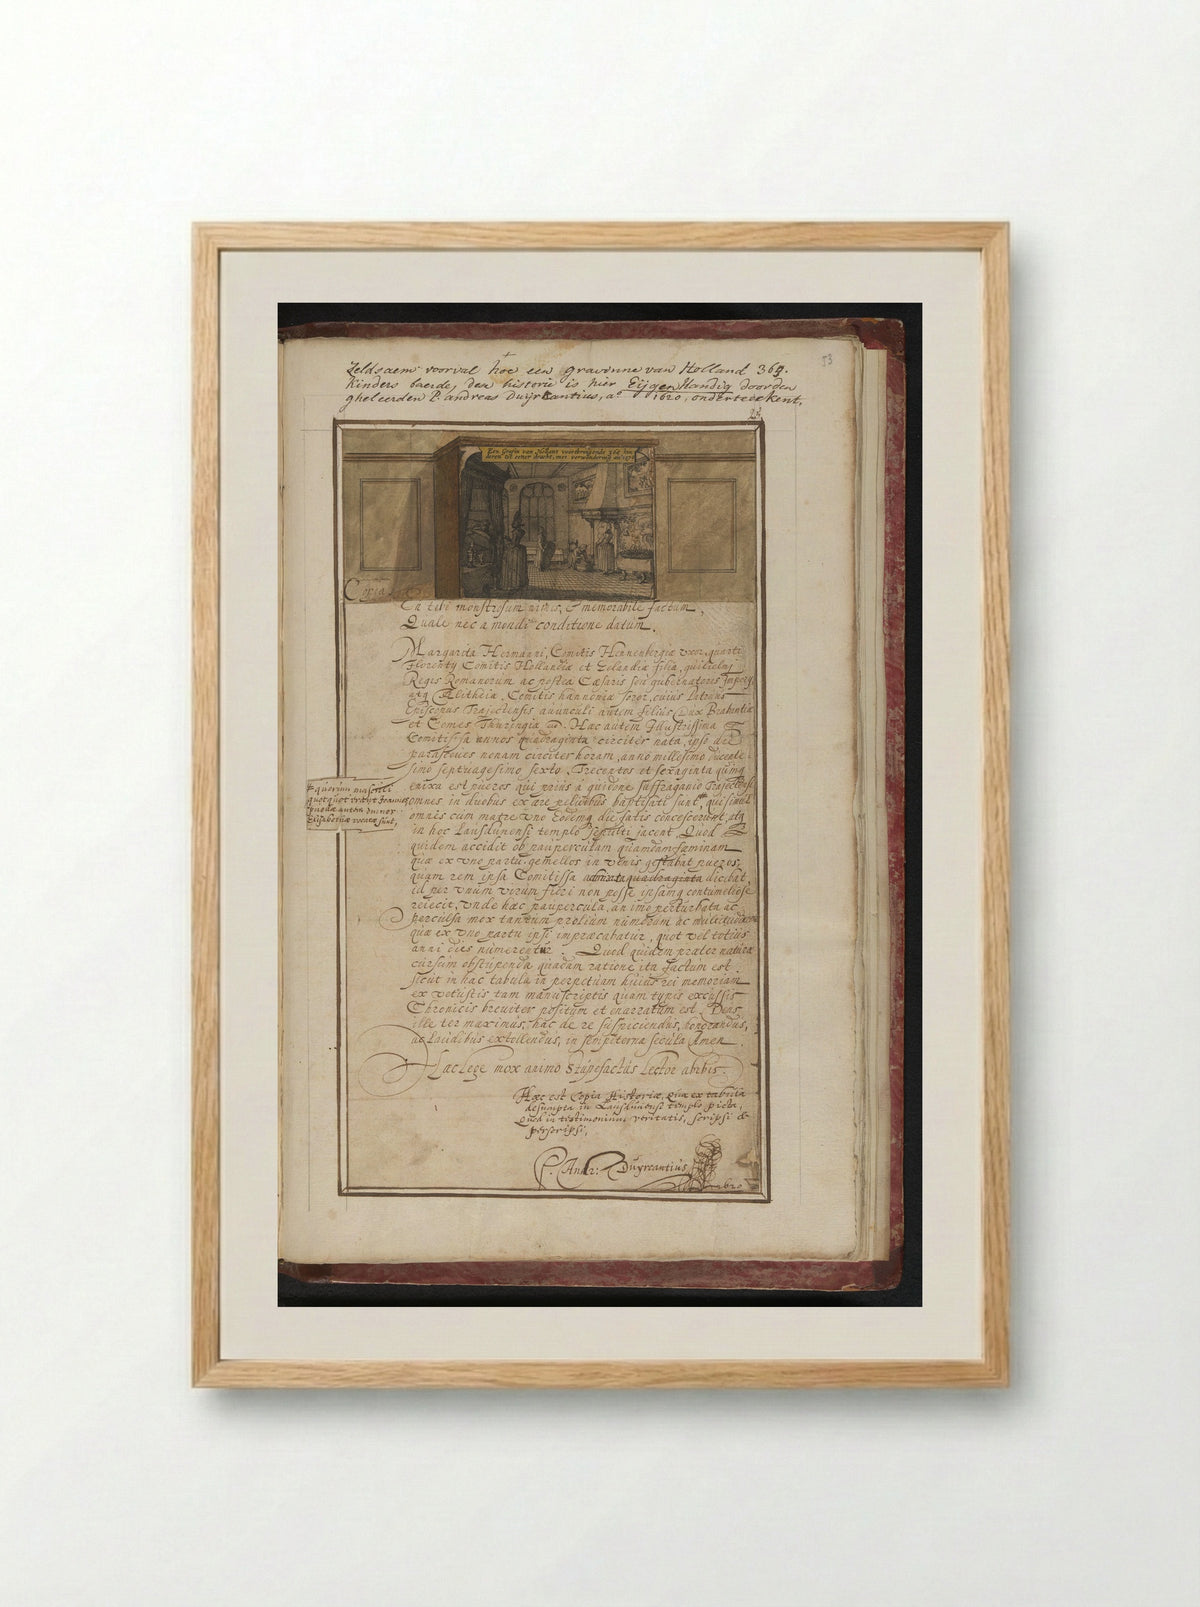 53
Zeldsaem voorval hoe een gravinne van Holland 365.
Kinders baerde, den historie is hier Eijgen Handig doorden
gheleerden P. andreas Duijrkantius, aº 1620, onderteeckent.
Een Grafin van Hollant voortbrengende 365 kin
deren tot eener dracht, met verwondering an
Copia
En tibi monstrosum nimis, & memorabile factum,
Quale nec a mondi conditione datum.
Margareta Hermanni, Comitis Hennenbergiæ vxor, quarti
Florenty Comitis Hollandiæ et Zelandiæ filia, quilielmj
Regis Romanorum ac postea Cæsaris seu gubernatoris Impery,
atq Alitheiæ, Comitis hannoniæ soror, cuius Patruus
Episcopus Trajectensis avunculi autem filius, Dux Brabantiæ
et Comes Thuringiæ Hæc autem Illustrissima
Comitissa annos quadraginta circiter nata, ipso die
parasceues nonam circiter horam, anno millesimo ducente
simo septuagesimo sexto, Trecentos et sexaginta quinq
enixa est pueros qui prius a guidone suffraganio Trajectense
omnes in duobus ex ære peluibus baptisati sunt, qui simul
omnes cum matre vno eodemq die fatis concesserunt, atq
in hoc Lausdunensi templo sepulti jacent. Quod
quidem accidit ob pauperculam quamdam fæminam
quæ ex vno partu gemellos in vlnis gestabat pueros,
quam rem ipsa Comitissa dicebat,
id per vnum virum fieri non posse ipsamq contumeliose
reiecit, vnde hæc paupercula, animo perturbata ac
perculsa mox tantum prolium numerum ac multitudinem
quæ ex vno partu ipsi impræcabatur, quot vel totius
anni dies numerentur. Quod quidem præter naturæ
cursum obstupenda quadam ratione ita factum est
sicut in hac tabula in perpetuam huius rei memoriam
ex vetustis tam manuscriptis quam typis excussis
Chronicis breuiter positum et enarratum est. Deus
ille ter maximus, hac de re suspiciendus, honorandus,
ac Laudibus extollendus, in sempiterna secula Amen.
Hæc lege mox animo Stupefactus Lector abibis.
quorum masculi
quotquot erant Joannes
puellæ autem omnes
Elisabethæ vocatæ sunt,
Hæc est Copia Historiæ, quæ ex tabula
desumpta in Lausdunensi templo picta,
Quod in testimonium veritatis, scripsi &
perscripsi,
P. Andr: Duyrcantius